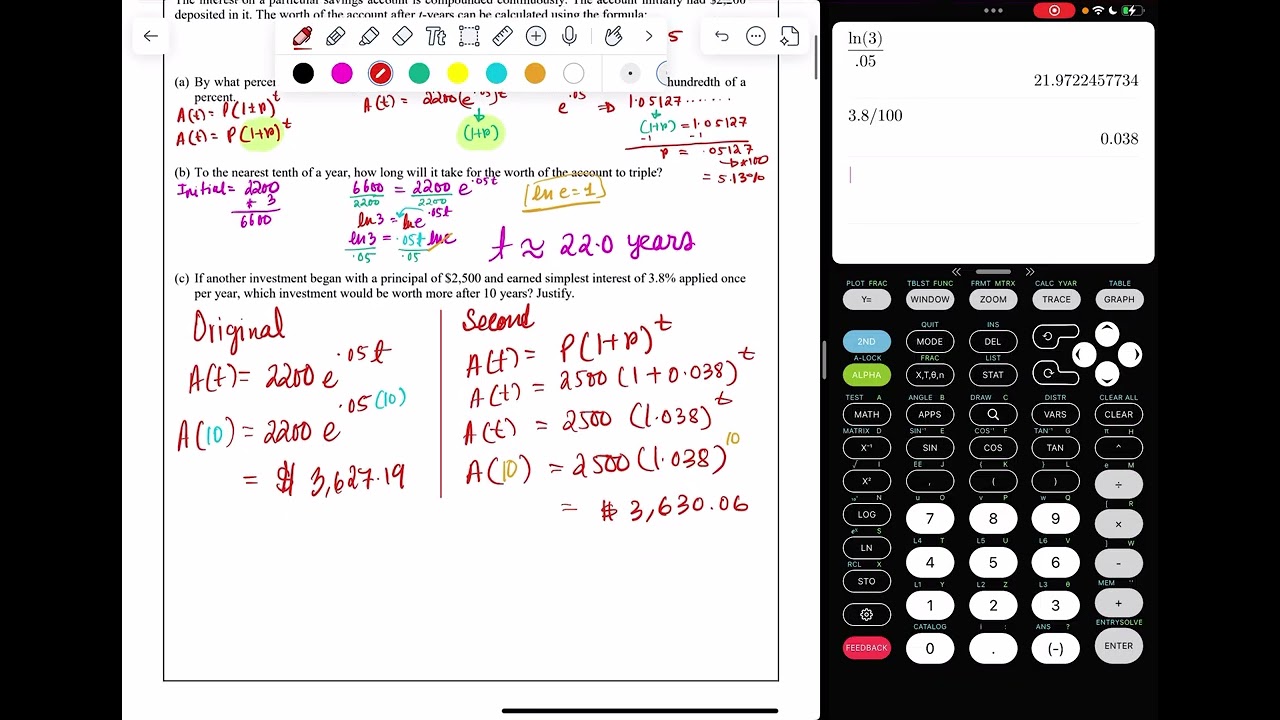 The interest on a particular savings account is compounded continuously. The account initially had $2,200
deposited in it. The worth of the account after t-years can be calculated using the formula:
Tt
5
(a) By what percen
hundredth of a
percent.
A(t) = P(1+p)^t
A(t) = P(1+p)^t
A(t) = 2200(e^.05)^t
(1+p)
e^.05 ⇒ 1.05127.......
(1+p) = 1.05127
-1 -1
p = .05127
*100
= 5.13%
(b) To the nearest tenth of a year, how long will it take for the worth of the account to triple?
Initial = 2200
* 3
6600
6600 = 2200 e^.05t
2200 2200
ln3 = lne^.05t
ln3 = .05t lne
.05 .05
ln e = 1
t ≈ 22.0 years
(c) If another investment began with a principal of $2,500 and earned simplest interest of 3.8% applied once
per year, which investment would be worth more after 10 years? Justify.
Original
A(t) = 2200 e^.05t
A(10) = 2200 e^.05(10)
= $ 3,627.19
Second
A(t) = P(1+p)^t
A(t) = 2500 (1+0.038)^t
A(t) = 2500 (1.038)^t
A(10) = 2500 (1.038)^10
= $ 3,630.06
ln(3)
.05
21.9722457734
3.8/100
0.038
PLOT FRAC TBLST FUNC FRMT MTRX CALC YVAR TABLE
Y= WINDOW ZOOM TRACE GRAPH
QUIT INS
2ND MODE DEL
A-LOCK FRAC LIST
ALPHA X,T,θ,n STAT
TEST A ANGLE B DRAW C DISTR CLEAR ALL
MATH APPS VARS CLEAR
MATRIX D SIN⁻¹ E COS⁻¹ F TAN⁻¹ G π H
X⁻¹ SIN COS TAN ^
√ I EE J { K } L e M
X² , ( ) ÷
10ˣ N u O v P w Q [ R
LOG 7 8 9 ×
eˣ S L4 T L5 U L6 V ] W
LN 4 5 6 -
RCL X L1 Y L2 Z L3 θ MEM "
STO 1 2 3 +
CATALOG i : ANS ? ENTRYSOLVE
FEEDBACK 0 . (-) ENTER